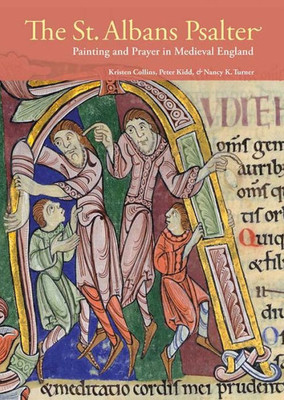 The St. Albans Psalter
Painting and Prayer in Medieval England
Kristen Collins, Peter Kidd, & Nancy K. Turner
omſ gen
aurib;
omſ q
tis orb
& fil
& meditatio cordis mei prudenti